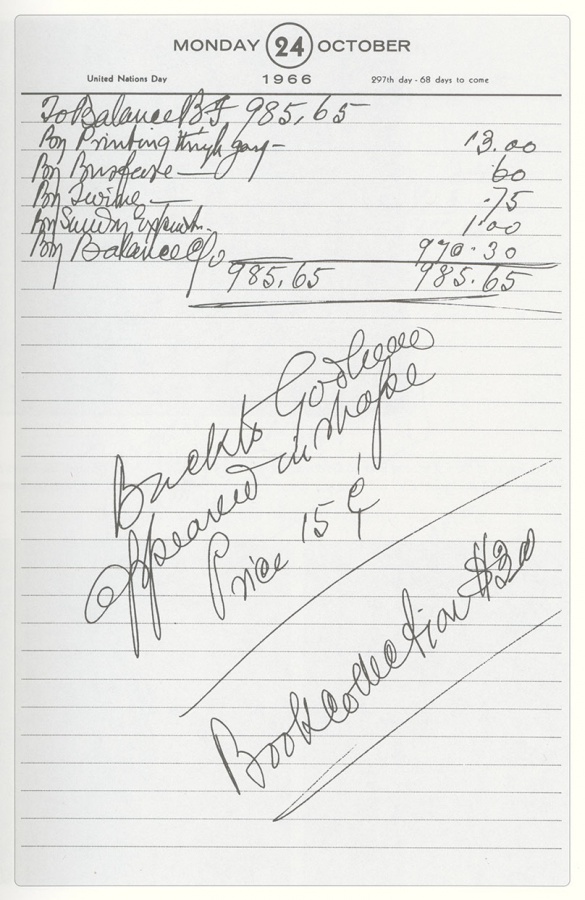 MONDAY 24 OCTOBER
United Nations Day 1966 297th day - 68 days to come
To Balance B.F. 985.65
By Printing through gary- 13.00
By Busfare — 60
By Twine — .75
By Sundry 1.00
By Balance c/o 970.30
985.65 985.65
Back to Godhead
appeared in shape
Price 15 ¢
Book collection $20